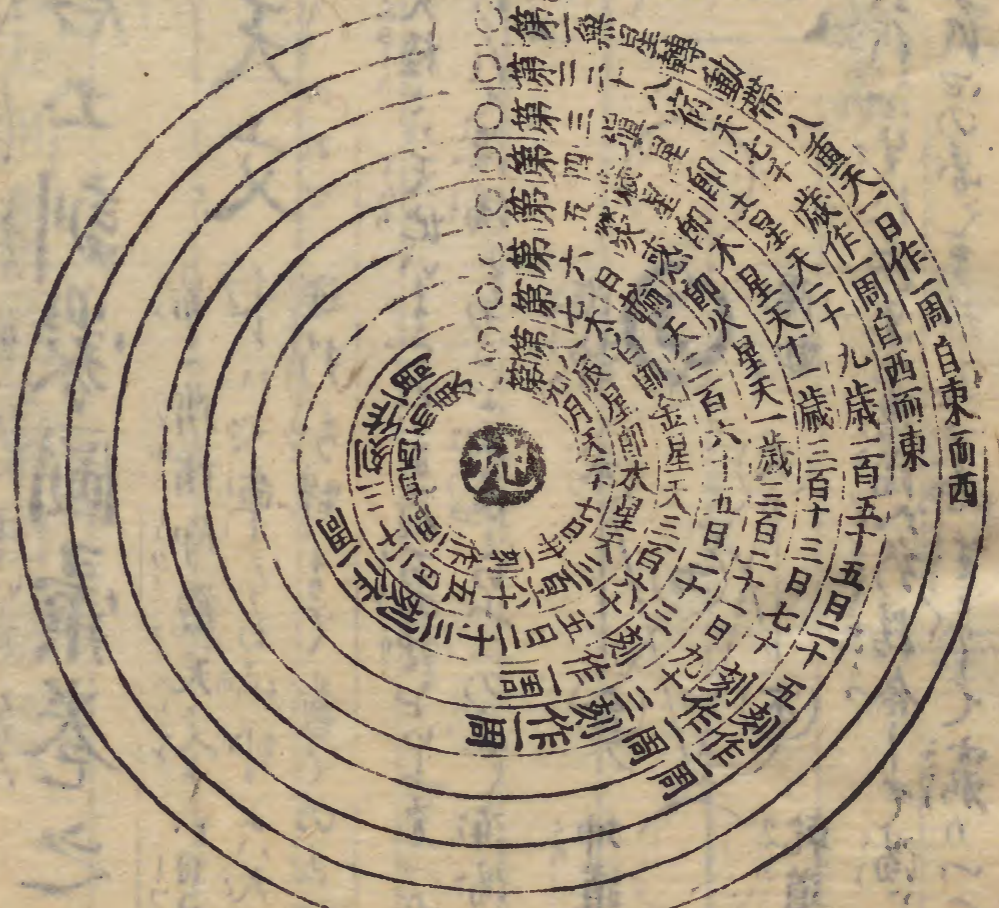 第一無星轉動帶八重天一日作一周自東而西
第二二十八宿天七千歲作一周自西而東
第三塡星即土星天二十九歲一百五十五日二十五刻作一周
第四歲星即木星天十一歲三百十三日七十刻作一周
第五熒惑即火星天一歲三百二十一日九十三刻作一周
第六日輪天三百六十五日二十三刻作一周
第七太白星即金星天三百六十五日二十三刻作一周
第八辰星即水星天三百六十五日二十三刻作一周
月天二十七日三十一刻作一周自西而東
地